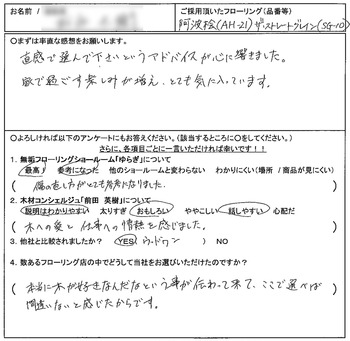 お名前
ご採用頂いたフローリング(品番等)
阿波桧(AH-21) ザ・ストレートグレイン(SG-10)
○まずは率直な感想をお願いします。
直感で選んで下さいというアドバイスが心に響きました。
家で過ごす楽しみが増え、とても気に入っています。
○よろしければ以下のアンケートにもお答えください。(該当するところに○をしてください。)
さらに、各項目ごとに一言いただければ幸いです!!
1. 無垢フローリングショールーム「ゆらぎ」について
最高! 参考になった 他のショールームと変わらない わかりにくい(場所 / 商品が見にくい)
傷の直し方がとても参考になりました。
2. 木材コンシェルジュ「前田 英樹」について
説明はわかりやすい 太りすぎ おもしろい ややこしい 話しやすい 心配だ
木への愛と仕事への情熱を感じました。
3. 他社と比較されましたか? YES( ウッドワン ) NO
4. 数あるフローリング店の中でどうして当社をお選びいただけたのですか?
本当に木が好きなんだなという事が伝わって来て、ここで選べば
間違いないと感じたからです。